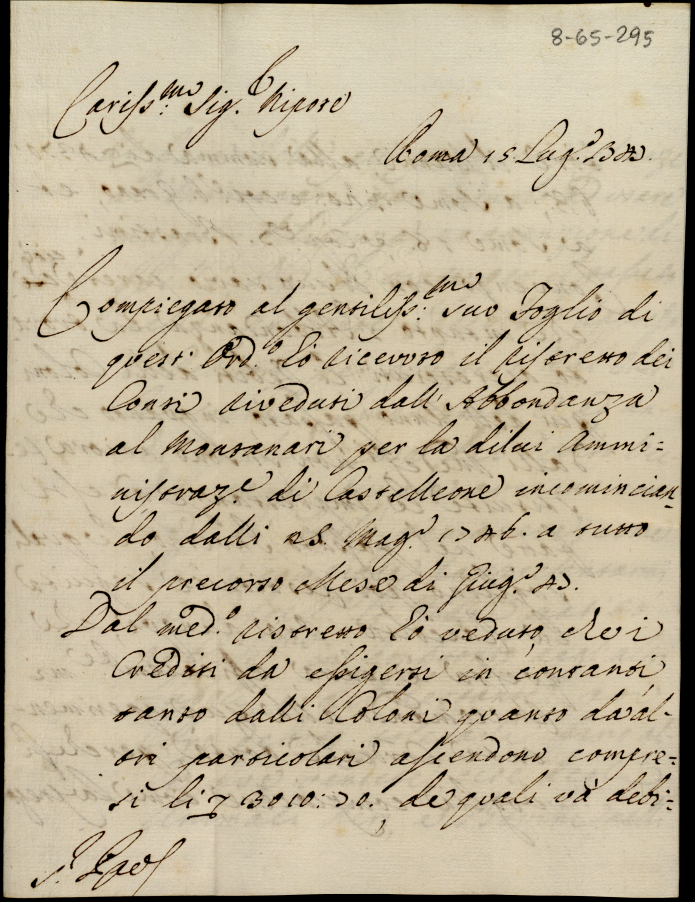 8-65-295
Cariss:mo Sig.r Nipote
Roma 15. Lug.o
Compiegato al gentiliss:mo suo Foglio di
quest' Ord.o hò ricevuto il ristretto dei
Conti riveduti dall' Abbondanza
al Montanari per la dilui Ammi=
nistraz.e di Castelleone incomincian=
do dalli 25. Mag.o 1746. a tutto
il precorso Mese di Giug.o 47.
Dal med.o ristretto hò veduto, che i
Crediti da essigersi in contanti,
tanto dalli Coloni quanto da al-
tri particolari ascendono compre=
si li 3010:70., de quali và debi-